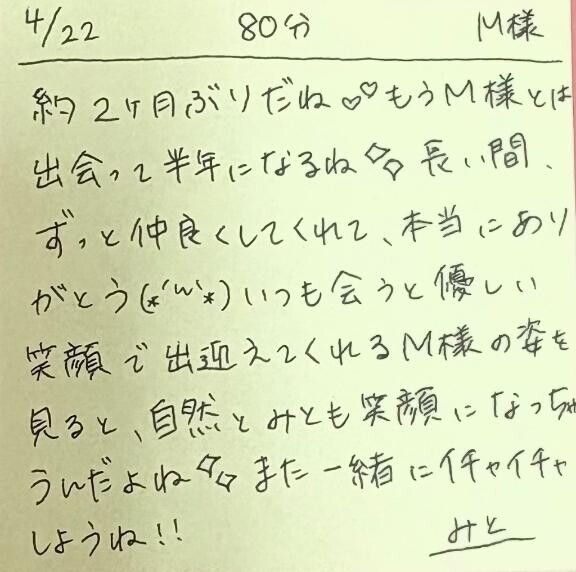 4/22 80分 M様
約2ヶ月ぶりだね♡♡もうM様とは
出会って半年になるね✧✧長い間、
ずっと仲良くしてくれて、本当にあり
がとう(*´ω`*)いつも会うと優しい
笑顔で出迎えてくれるM様の姿を
見ると、自然とみとも笑顔になっちゃ
うんだよね✧✧また一緒にイチャイチャ
しようね!!
みと